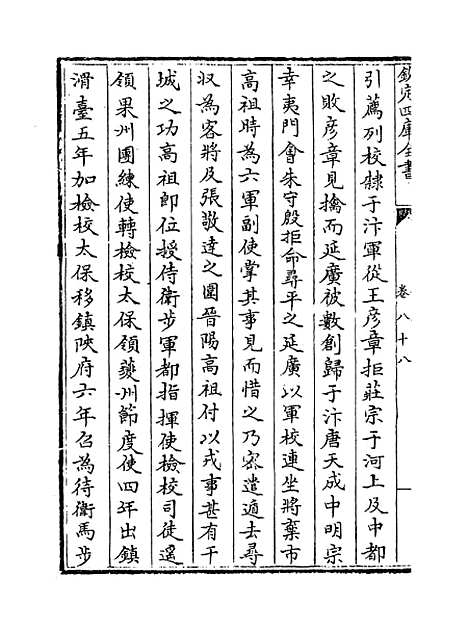 欽定四庫全書
卷八十八
引薦列校隸于汴軍從王彦章拒莊宗于河上及中都
之敗彦章見擒而延廣被數創歸于汴唐天成中明宗
幸夷門會朱守殷拒命尋平之延廣以軍校連坐將棄市
高祖時為六軍副使掌其事見而惜之乃密遣遁去尋
収為客將及張敬達之圍晉陽高祖付以戎事甚有干
城之功高祖即位授侍衛步軍都指揮使檢校司徒遥
領果州團練使轉檢校太保領夔州節度使四年出鎮
滑臺五年加檢校太保移鎮陜府六年召為侍衛馬步